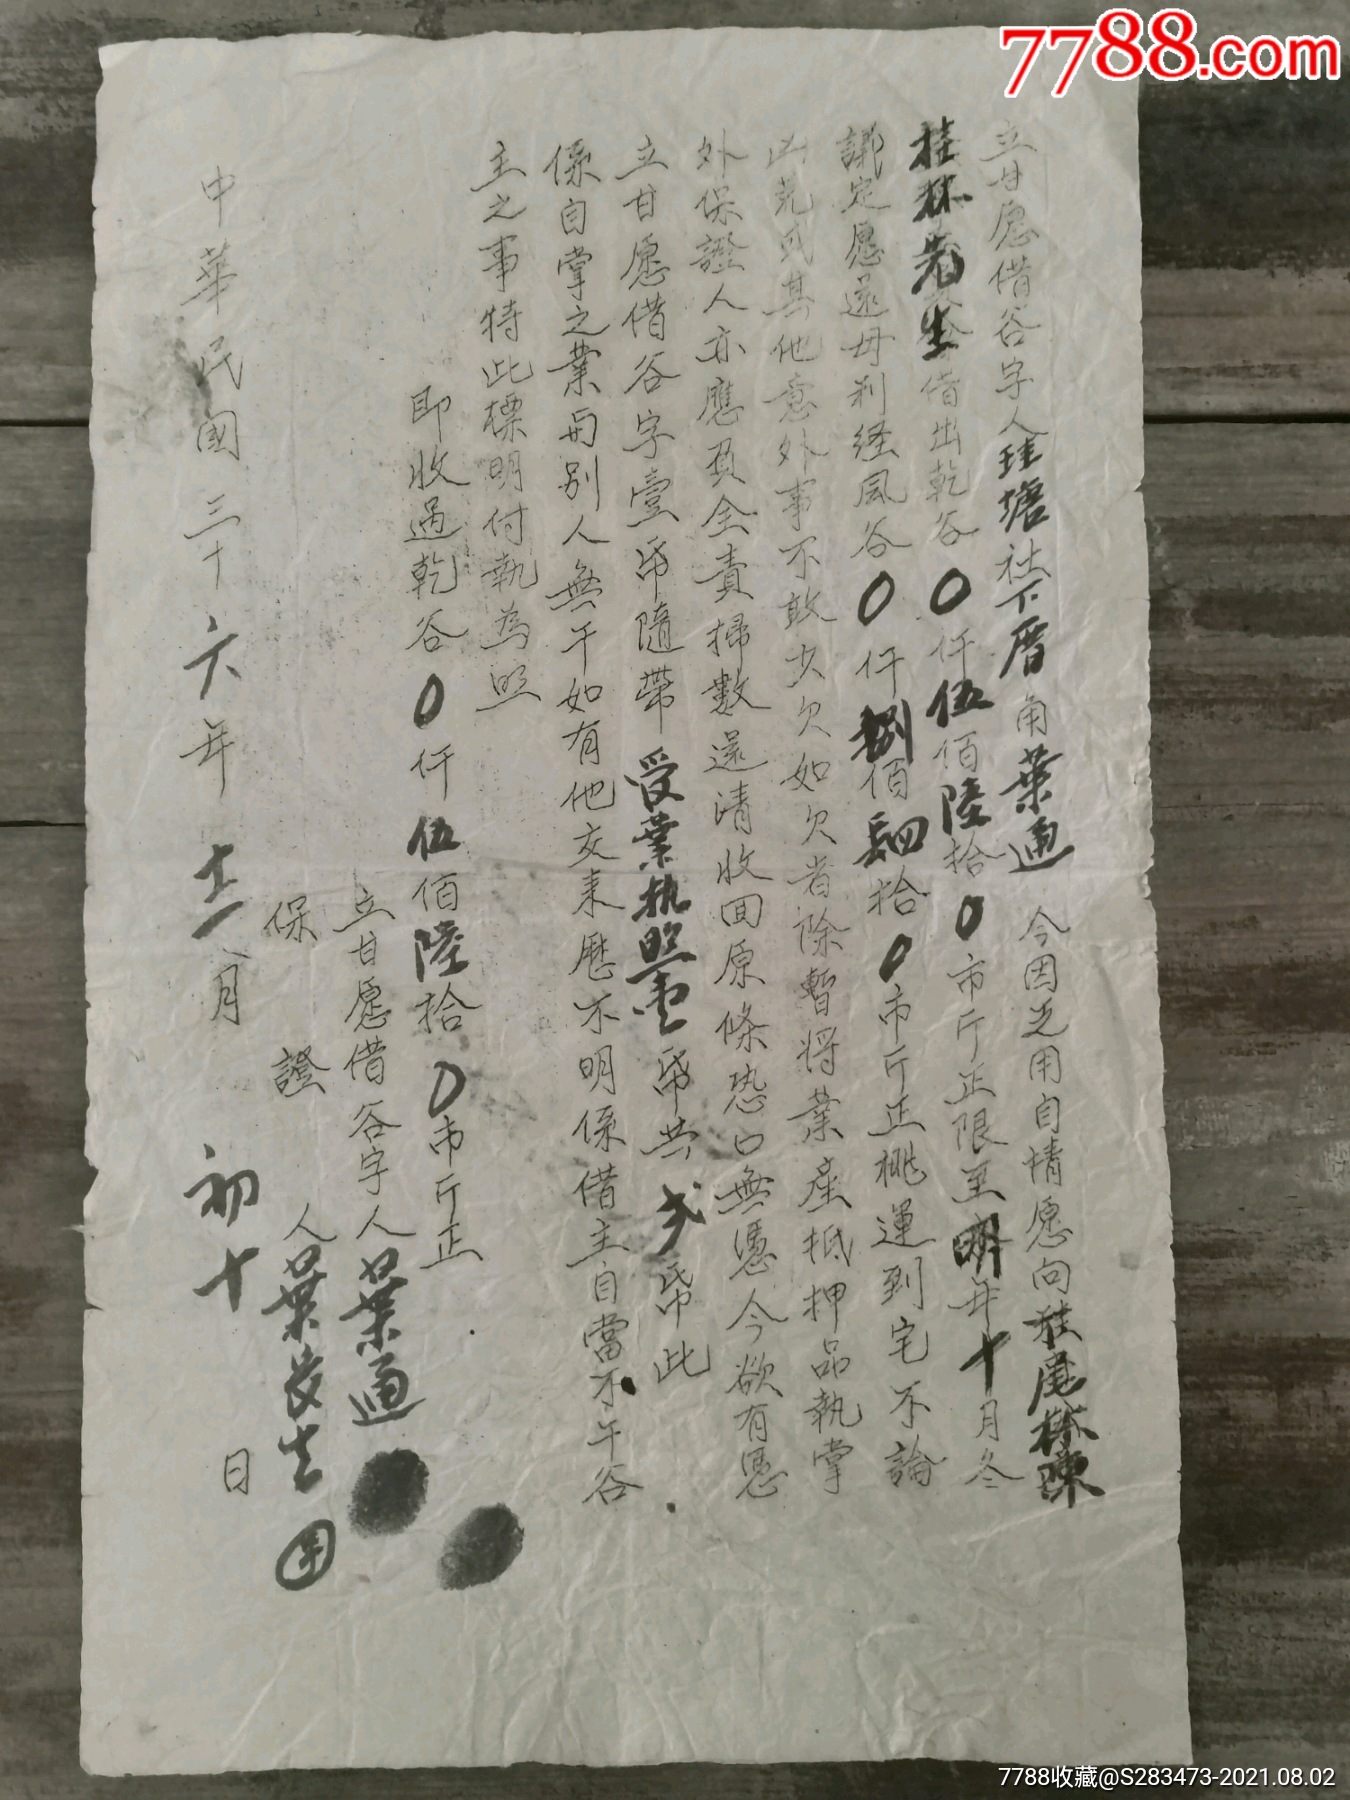 7788.com
立甘愿借谷字人珪塘社下厝角葉通 今因乏用自情愿向珪尾林陳
桂林先生借出乾谷0仟伍佰陸拾0市斤正限至明年十月冬
議定愿還母利経風谷0仟捌佰肆拾0市斤正桃運到宅不論
凶荒或其他意外事不敢少欠如欠者除暫將業產抵押品執掌
外保證人亦應負全責掃數還清收回原條恐口無憑今欲有憑
立甘愿借谷字壹帋隨帶受業执照壹帋共弍帋此
係自掌之業與别人無干如有他交来歷不明係借主自當不午谷
主之事特此標明付執為照
即收過乾谷0仟伍佰陸拾0市斤正
立甘愿借谷字人葉通
保證人葉
中華民國三十六年十二月初十日
7788收藏@S283473-2021.08.02